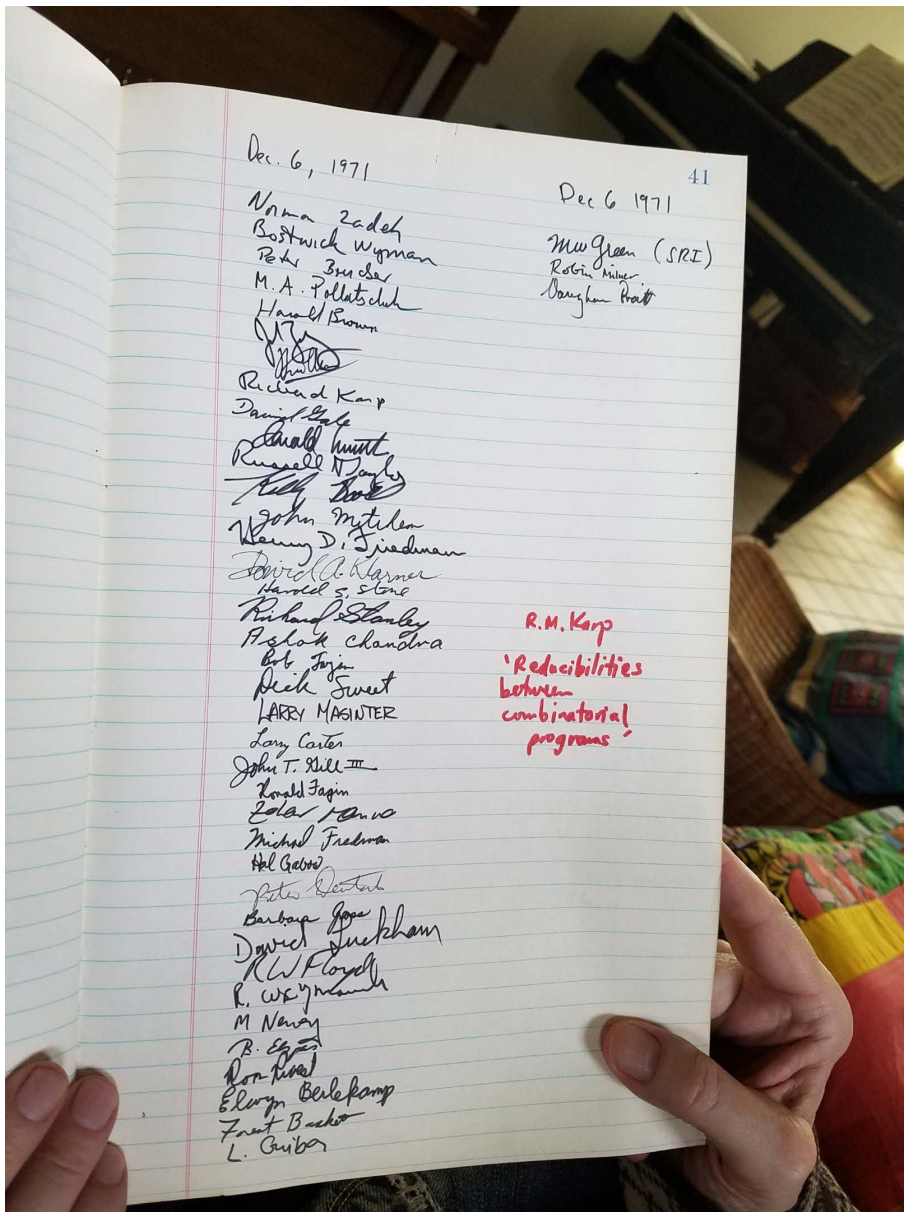 41
Dec. 6, 1971
Norman Zadeh
Bostwick Wyman
Peter
M. A.
Harold Brown
Richard Karp
David Gale
Donald Knuth
Russell
John
Henry D. Friedman
David A. Klarner
Harold S. Stone
Richard Stanley
Ashok Chandra
Bob
Dick Sweet
LARRY MASINTER
Larry Carter
John T. Gill III
Ronald Fagin
Zohar Manna
Michael Fredman
Hal Gabow
Peter Deutsch
Barbara
David Luckham
RW Floyd
R.
M Newey
B.
Ron Rivest
Elwyn Berlekamp
Forest Baskett
L. Guibas
Dec 6 1971
MW Green (SRI)
Robin Milner
Vaughan Pratt
R.M. Karp
'Reducibilities
between
combinatorial
programs'